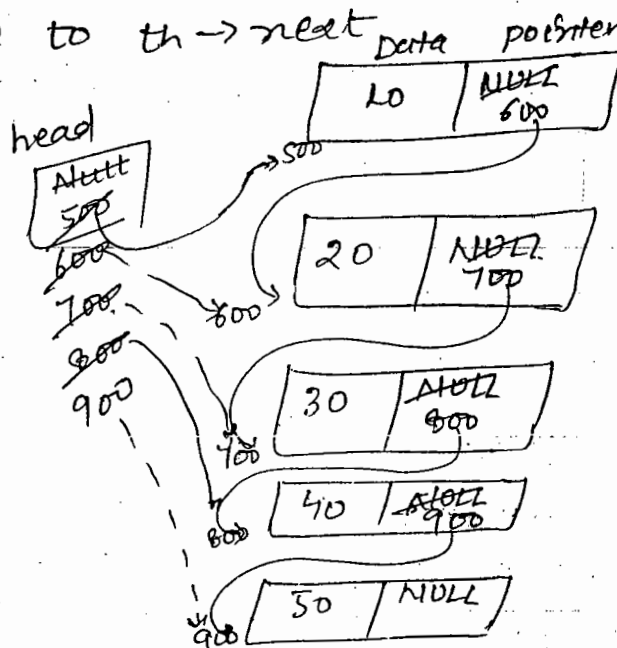 to th → next
Data pointer
head
10 NULL
600
NULL
500
500
600
700
800
900
20 NULL
700
600
30 NULL
800
700
40 NULL
900
800
50 NULL
900